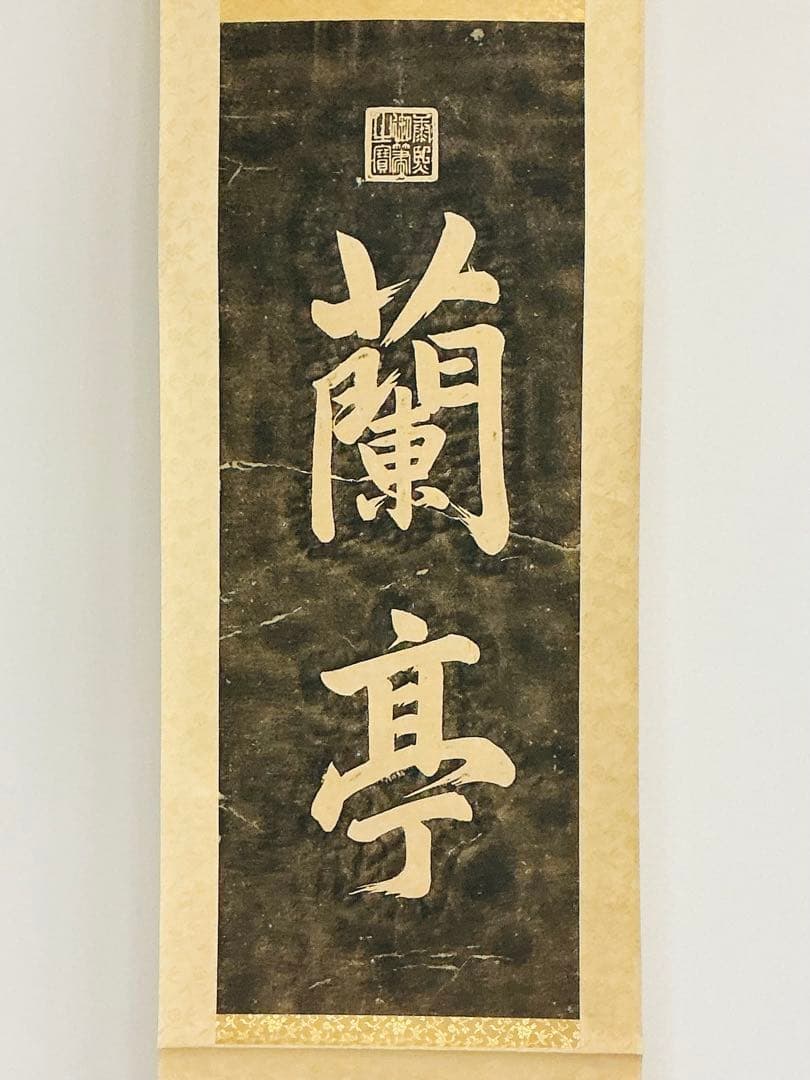 康熙御筆之寶
蘭亭